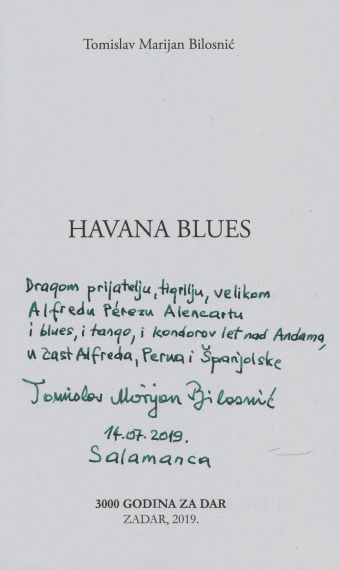 Tomislav Marijan Bilosnić
HAVANA BLUES
Dragom prijatelju, tigrilju, velikom
Alfredu Pérezu Alencartu
i blues, i tango, i kondorov let nad Andama,
u čast Alfreda, Perua i Španjolske
Tomislav Marijan Bilosnić
14.07.2019.
Salamanca
3000 GODINA ZA DAR
ZADAR, 2019.